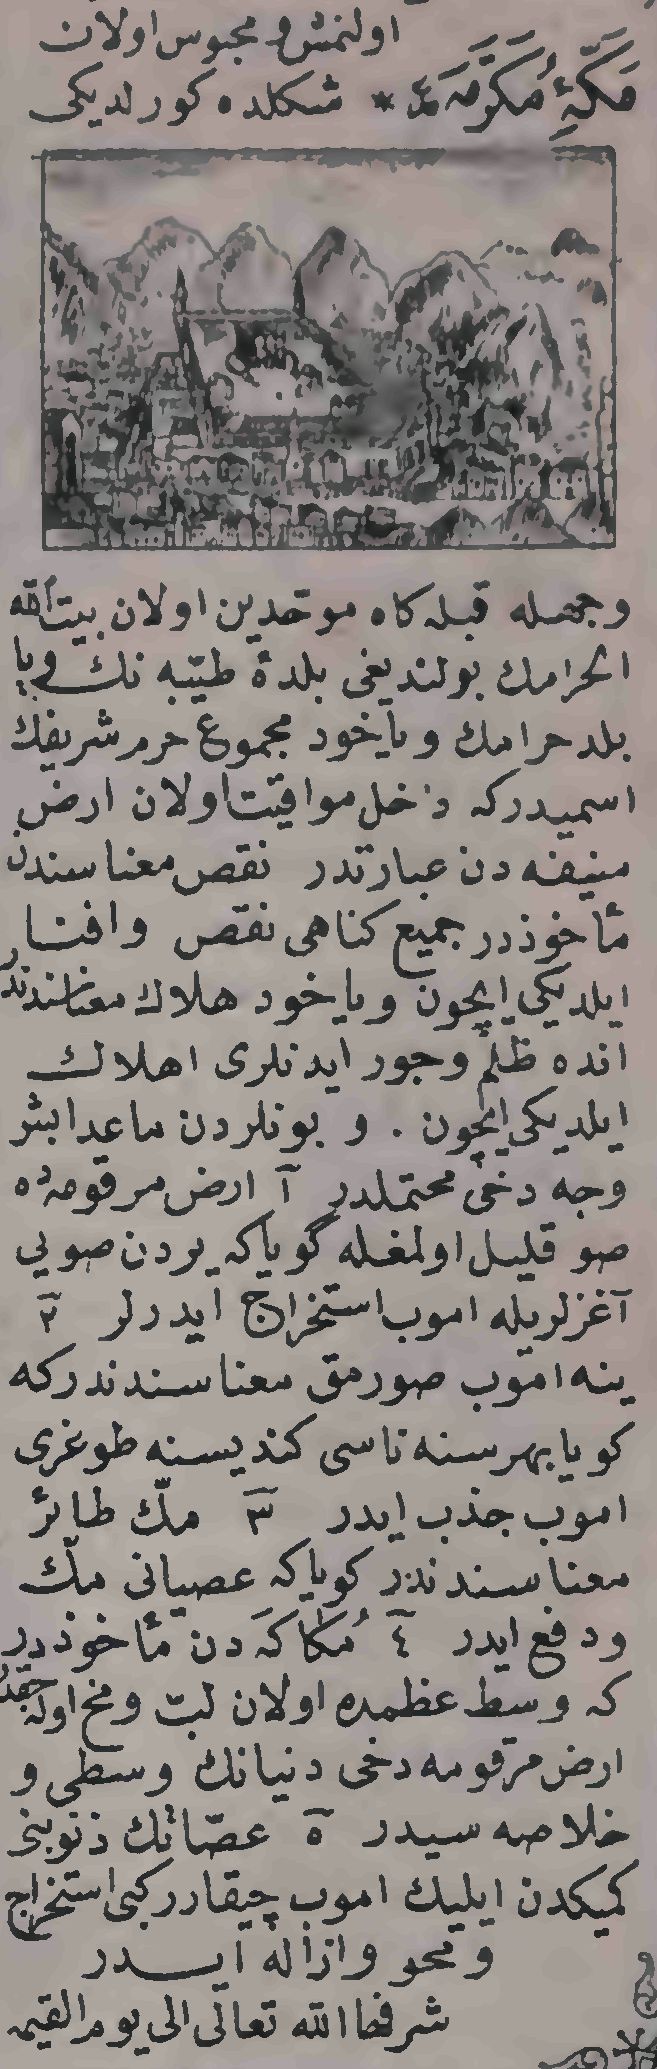 اولنمش و محبوس اولان
مَكَّهِٔ مُكَرَّمَه نك * شكلده كورلديكى
وجمله قبله كاه موحّدين اولان بيت الله
الحرامك بولنديغى بلدهٔ طيّبه نك ويا
بلد حرامك وياخود مجموع حرم شريفك
اسميدركه داخل مواقيت اولان ارض
منيفه دن عبارتدر نقص معناسندن
مأخوذدر جميع كناهى نقص وافنا
ايلديكى ايچون وياخود هلاك معناسندندر
انده ظلم وجور ايدنلرى اهلاك
ايلديكى ايچون . و بونلردن ماعدا بش
وجه دخى محتملدر ١ ارض مرقومه ده
صو قليل اولمغله گوياكه يردن صويى
آغزلريله اموب استخراج ايدرلر ٢
ينه اموب صورمق معناسندندركه
كويا بهر سنه ناسى كنديسنه طوغرى
اموب جذب ايدر ٣ مكّ طائر
معناسندندر كوياكه عصيانى مكّ
ودفع ايدر ٤ مُكَاكَه دن مأخوذدر
كه وسط عظمده اولان لبّ ومخ اوله جقدر
ارض مرقومه دخى دنيانك وسطى و
خلاصه سيدر ٥ عصّاتك ذنوبنى
كميكدن ايليك اموب چيقارر كبى استخراج
ومحو وازاله ايدر
شرفها الله تعالى الى يوم القيمه